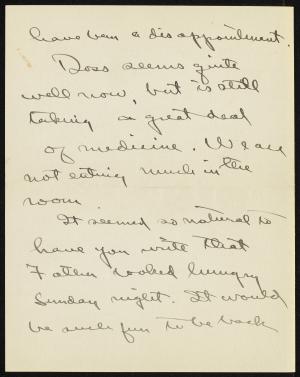 have been a disappointment.
Doss seems quite
well now, but is still
taking a great deal
of medicine. We are
not eating much in the
room.
It seemed so natural to
have you write that
Father looked hungry
Sunday night. It would
be such fun to be back